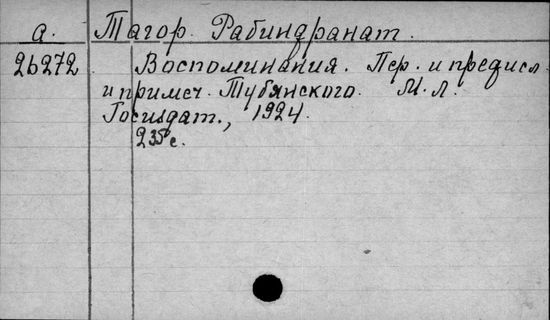 а. Тагор. Рабиндранат.
26272 Воспоминания. Пер. и предисл.
и примеч. Тубянского. М. Л.
Госиздат., 1924.
235 с.